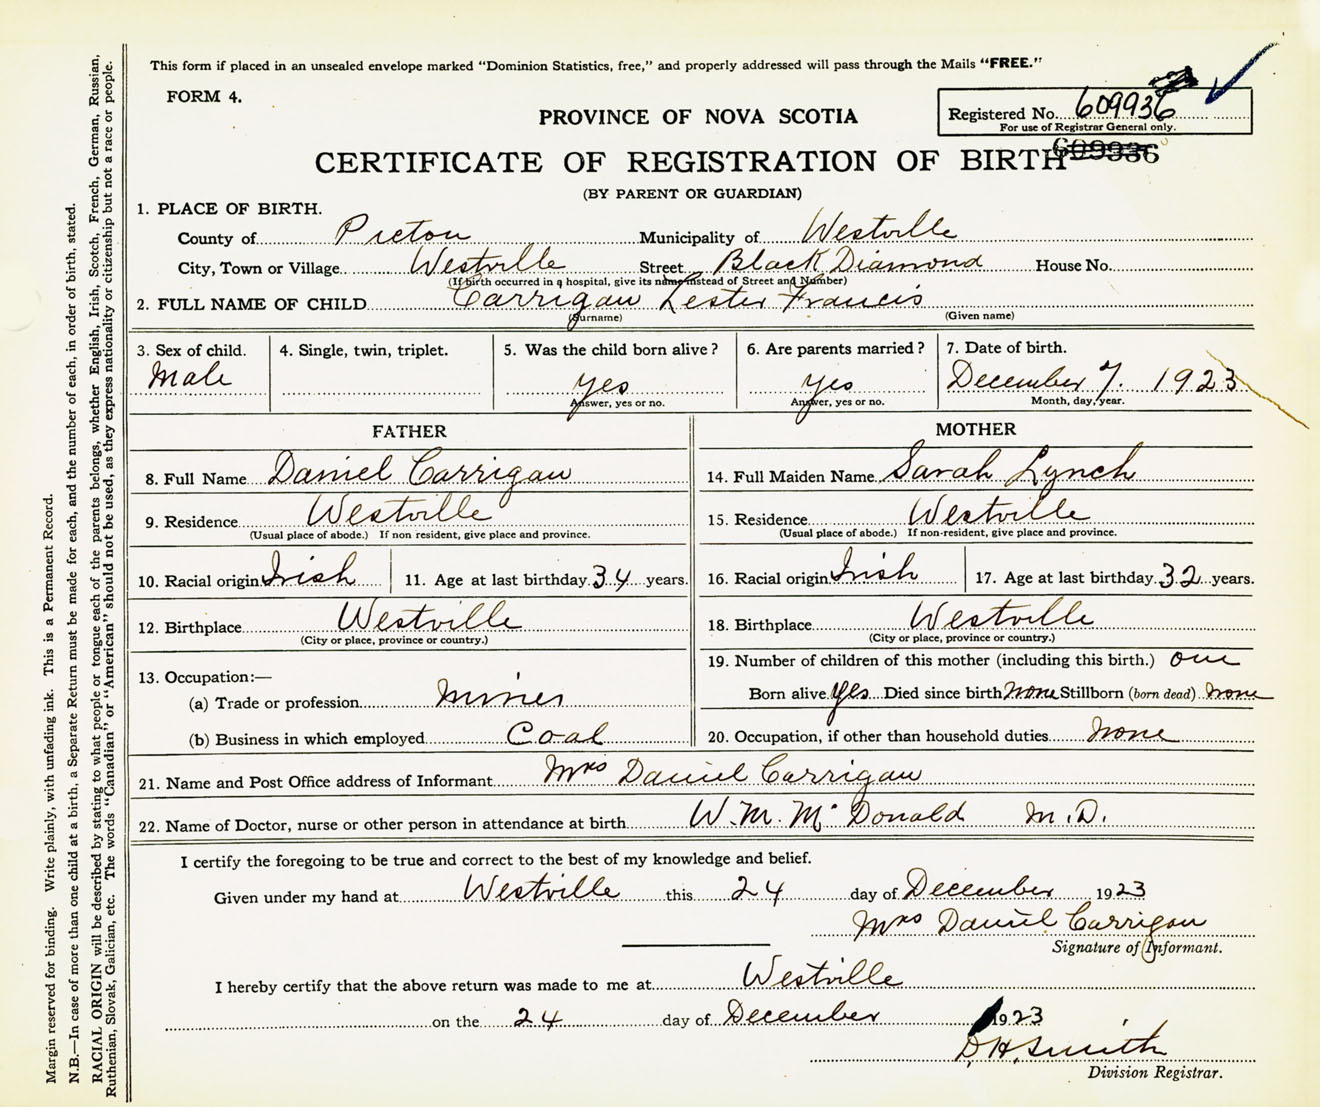 This form if placed in an unsealed envelope marked "Dominion Statistics, free," and properly addressed will pass through the Mails "FREE."
FORM 4.
Registered No. 609936
For use of Registrar General only.
PROVINCE OF NOVA SCOTIA
609936
CERTIFICATE OF REGISTRATION OF BIRTH
(BY PARENT OR GUARDIAN)
1. PLACE OF BIRTH.
County of Pictou Municipality of Westville
City, Town or Village Westville Street Black Diamond House No.
(If birth occurred in a hospital, give its name instead of Street and Number)
2. FULL NAME OF CHILD Carrigan Lester Francis
(Surname) (Given name)
3. Sex of child. 4. Single, twin, triplet. 5. Was the child born alive? 6. Are parents married? 7. Date of birth.
Male yes yes December 7. 1923
Answer, yes or no. Answer, yes or no. Month, day, year.
FATHER MOTHER
8. Full Name Daniel Carrigan 14. Full Maiden Name Sarah Lynch
9. Residence Westville 15. Residence Westville
(Usual place of abode.) If non resident, give place and province. (Usual place of abode.) If non-resident, give place and province.
10. Racial origin Irish 11. Age at last birthday 34 years. 16. Racial origin Irish 17. Age at last birthday 32 years.
12. Birthplace Westville 18. Birthplace Westville
(City or place, province or country.) (City or place, province or country.)
13. Occupation:— 19. Number of children of this mother (including this birth.) one
(a) Trade or profession miner Born alive yes Died since birth none Stillborn (born dead) none
(b) Business in which employed Coal 20. Occupation, if other than household duties none
21. Name and Post Office address of Informant Mrs Daniel Carrigan
22. Name of Doctor, nurse or other person in attendance at birth W. M. Mc Donald M.D.
I certify the foregoing to be true and correct to the best of my knowledge and belief.
Given under my hand at Westville this 24 day of December 1923
Mrs Daniel Carrigan
Signature of Informant.
I hereby certify that the above return was made to me at Westville
on the 24 day of December 1923
D. H. Smith
Division Registrar.
Margin reserved for binding. Write plainly, with unfading ink. This is a Permanent Record.
N.B.—In case of more than one child at a birth, a Separate Return must be made for each, and the number of each, in order of birth, stated.
RACIAL ORIGIN will be described by stating to what people or tongue each of the parents belongs, whether English, Irish, Scotch, French, German, Russian,
Ruthenian, Slovak, Galician, etc. The words "Canadian" or "American" should not be used, as they express nationality or citizenship but not a race or people.